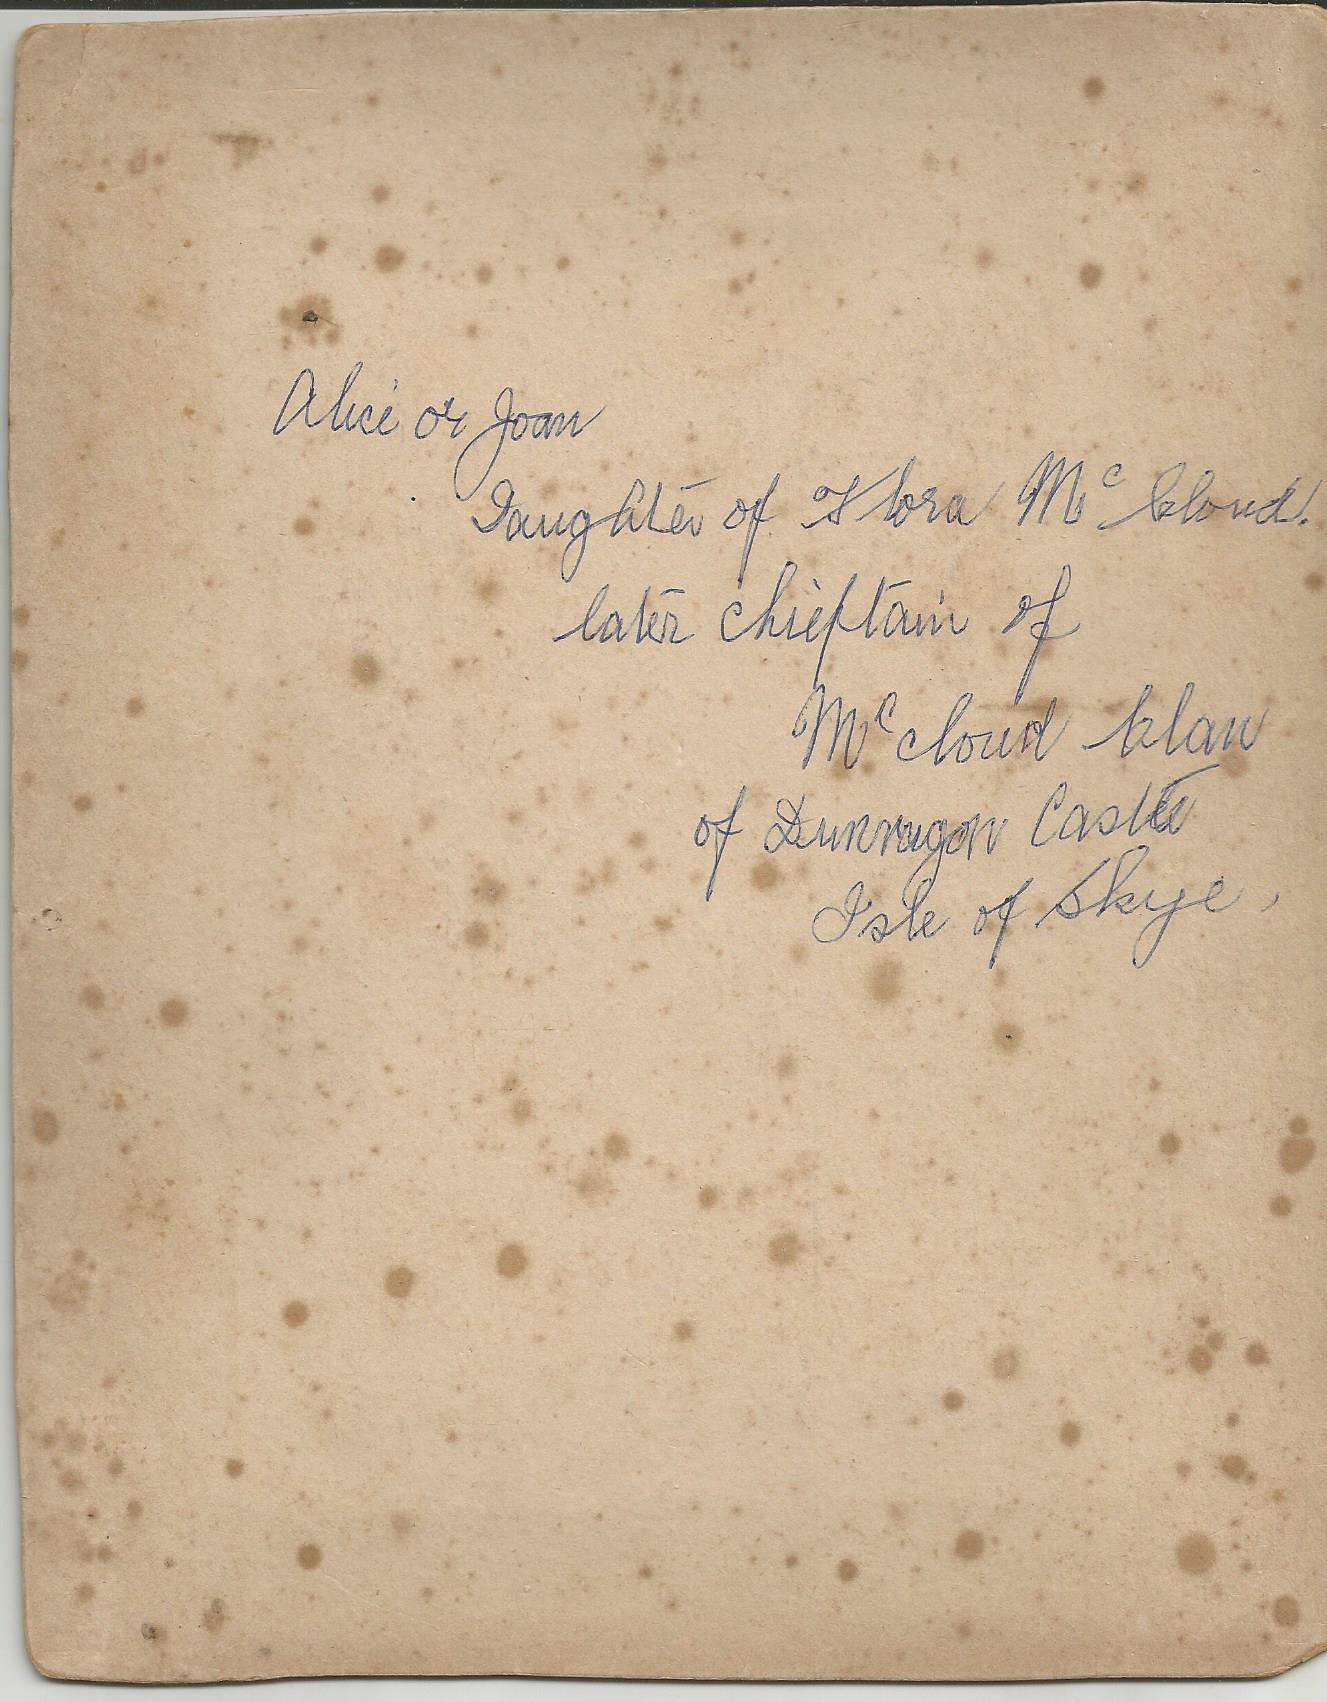 Alice or Joan
Daughter of Flora Mc Cloud.
later chieftain of
Mc cloud Clan
of Dunvagon Castle
Isle of Skye,